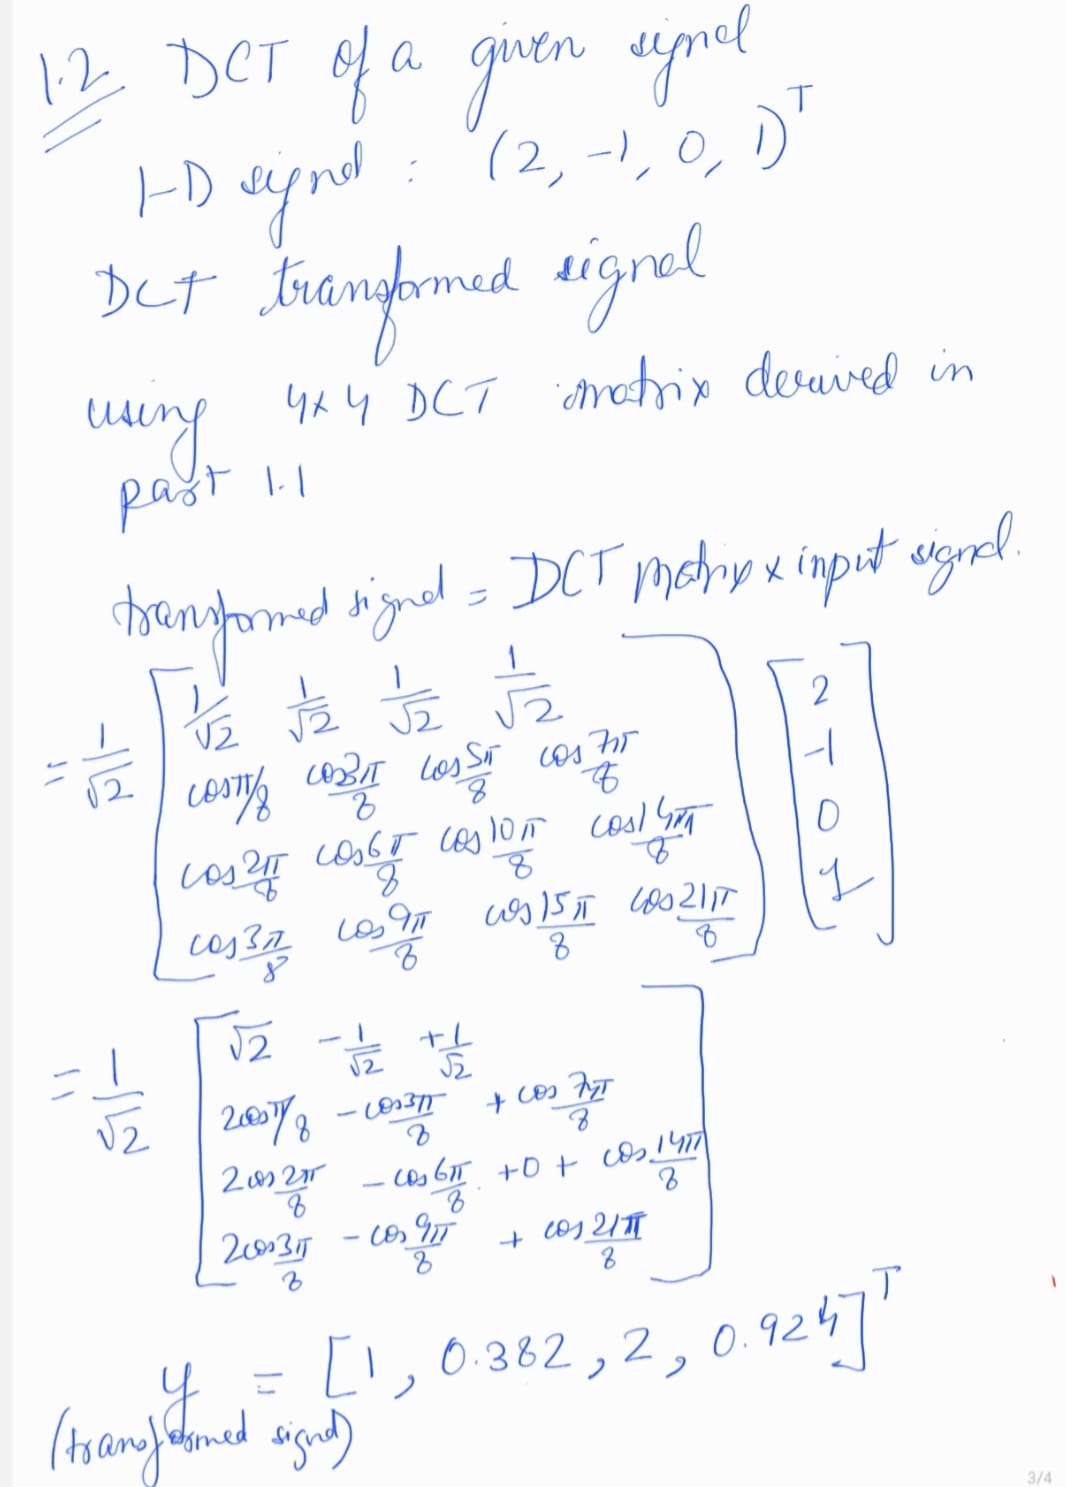 1.2 DCT of a given signal
1-D signal : (2, -1, 0, 1)^T
DCT transformed signal
using 4x4 DCT matrix derived in
part 1.1
transformed signal = DCT matrix x input signal.
= 1/√2 [ 1/√2 1/√2 1/√2 1/√2 ] [ 2 ]
cos π/8 cos 3π/8 cos 5π/8 cos 7π/8 -1
cos 2π/8 cos 6π/8 cos 10π/8 cos 14π/8 0
cos 3π/8 cos 9π/8 cos 15π/8 cos 21π/8 1
= 1/√2 [ √2 - 1/√2 + 1/√2 ]
2cos π/8 - cos 3π/8 + cos 7π/8
2cos 2π/8 - cos 6π/8 . +0 + cos 14π/8
2cos 3π/8 - cos 9π/8 + cos 21π/8
y = [1, 0.382, 2, 0.924]^T
(transformed signal)
3/4